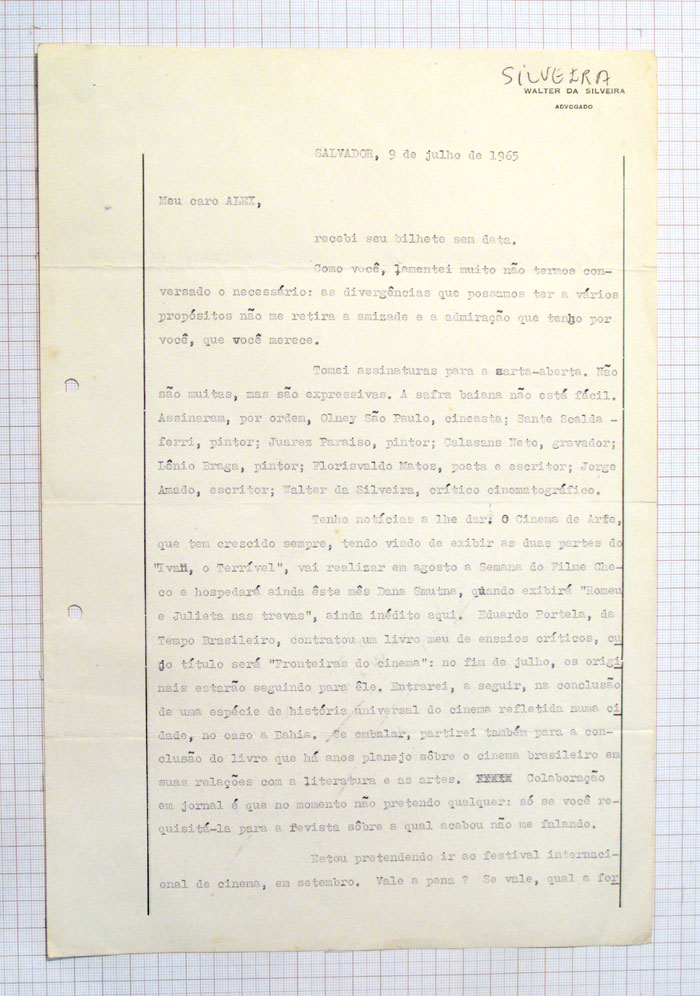 SILVEIRA
WALTER DA SILVEIRA
ADVOGADO
SALVADOR, 9 de julho de 1965
Meu caro ALEX,
recebi seu bilhete sem data.
Como você, lamentei muito não termos con-
versado o necessário: as divergências que possamos ter a vários
propósitos não me retira a amizade e a admiração que tenho por
você, que você merece.
Tomei assinaturas para a carta-aberta. Não
são muitas, mas são expressivas. A safra baiana não está fácil.
Assinaram, por ordem, Olney São Paulo, cineasta; Sante Scalda-
ferri, pintor; Juarez Paraiso, pintor; Calasans Neto, gravador;
Lênio Braga, pintor; Florisvaldo Matos, poeta e escritor; Jorge
Amado, escritor; Walter da Silveira, crítico cinematográfico.
Tenho notícias a lhe dar. O Cinema de Arte,
que tem crescido sempre, tendo vindo de exibir as duas partes do
"Ivan, o Terrível", vai realizar em agosto a Semana do Filme Che-
co e hospedará ainda êste mês Dana Smutna, quando exibirá "Romeu
e Julieta nas trevas", ainda inédito aqui. Eduardo Portela, da
Tempo Brasileiro, contratou um livro meu de ensaios críticos, cu
jo título será "Fronteiras do cinema": no fim de julho, os origi
nais estarão seguindo para êle. Entrarei, a seguir, na conclusão
de uma espécie de história universal do cinema refletida numa ci
dade, no caso a Bahia. Se embalar, partirei também para a con-
clusão do livro que há anos planejo sôbre o cinema brasileiro em
suas relações com a literatura e as artes. Colaboração
em jornal é que no momento não pretendo qualquer: só se você re-
quisitá-la para a revista sôbre a qual acabou não me falando.
Estou pretendendo ir ao festival internaci-
onal de cinema, em setembro. Vale a pena ? Se vale, qual a for